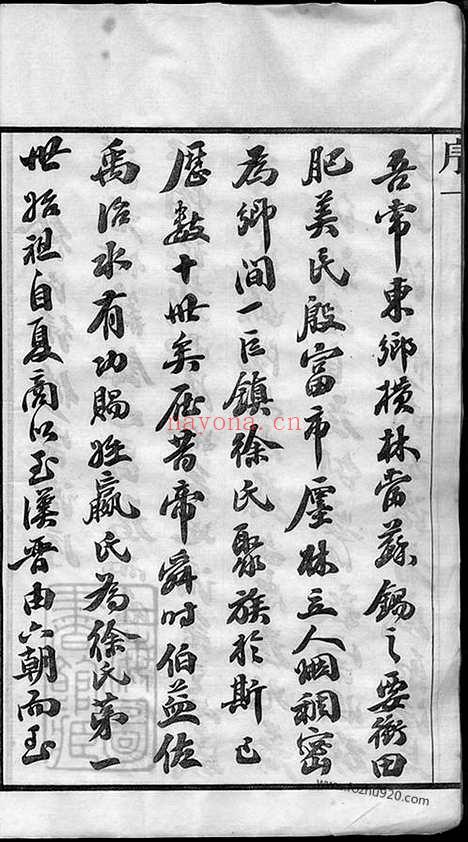 序一
吾常東鄉橫林當蘇錫之要衝田
肥美民殷富市廛林立人烟稠密
為鄉間一巨鎮徐氏聚族於斯已
歷數十世矣在昔帝舜時伯益佐
禹治水有功賜姓嬴氏為徐氏第一
世始祖自夏商以至漢晉由六朝而至
nayona.cn
www.fozhu920.com